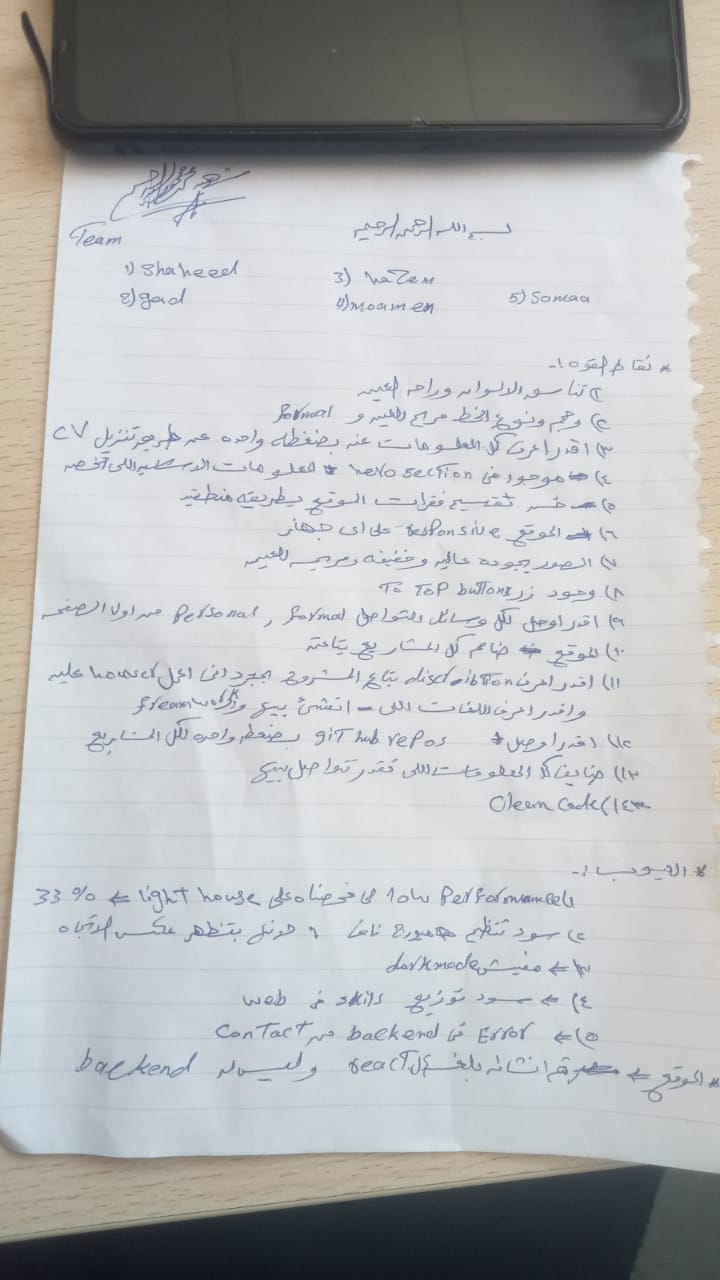 Team
بسم الله الرحمن الرحيم
1) Shaheed
3) hazem
2) gad
4) moamen
5) Somaa
* نقاط القوه :-
١) تناسق الالوان وراحه العين
٢) وحجم ونوع الخط مريح للعين و formal
٣) اقدر اعرف كل المعلومات عنه بضغطه واحده عن طريق تنزيل CV
٤) موجود في hero section المعلومات الاساسيه اللى تخصه
٥) حسن تقسيم فقرات الموقع بطريقه منطقيه
٦) الموقع responsive على اى جهاز
٧) الصور بجوده عاليه وخفيفه ومريحه للعين
٨) وجود زر To Top button
٩) اقدر اوصل لكل وسائل التواصل formal , Personal من اول الصفحه
١٠) الموقع ضامم كل المشاريع بتاعته
١١) اقدر اعرف discribtion بتاع المشروع بمجرد انى اعمل hower عليه
واقدر اعرف اللغات اللى اتنشئ بيها و freamwork
١٢) اقدر اوصل gitHub repos بضغطه واحده لكل المشاريع
١٣) ضايف كل المعلومات اللى تقدر تتواصل بيها
١٤) Cleen Code
* العيوب :-
١) Performance low لما فحصناه على light house ← 33 %
٢) سوء تنظيم بتظهر عكس الاتجاه
٣) ← مفيش darkmode
٤) ← سوء توزيع skils في web
٥) ← Error في backend من Contact
* الموقع ← تم انشائه بلغه ال react وليس له backend